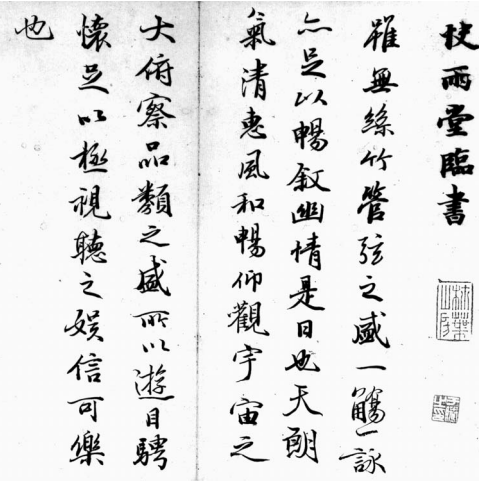 快雨堂臨書
雖無絲竹管弦之盛一觴一詠
亦足以暢叙幽情是日也天朗
氣清惠風和暢仰觀宇宙之
大俯察品類之盛所以遊目騁
懷足以極視聽之娛信可樂
也